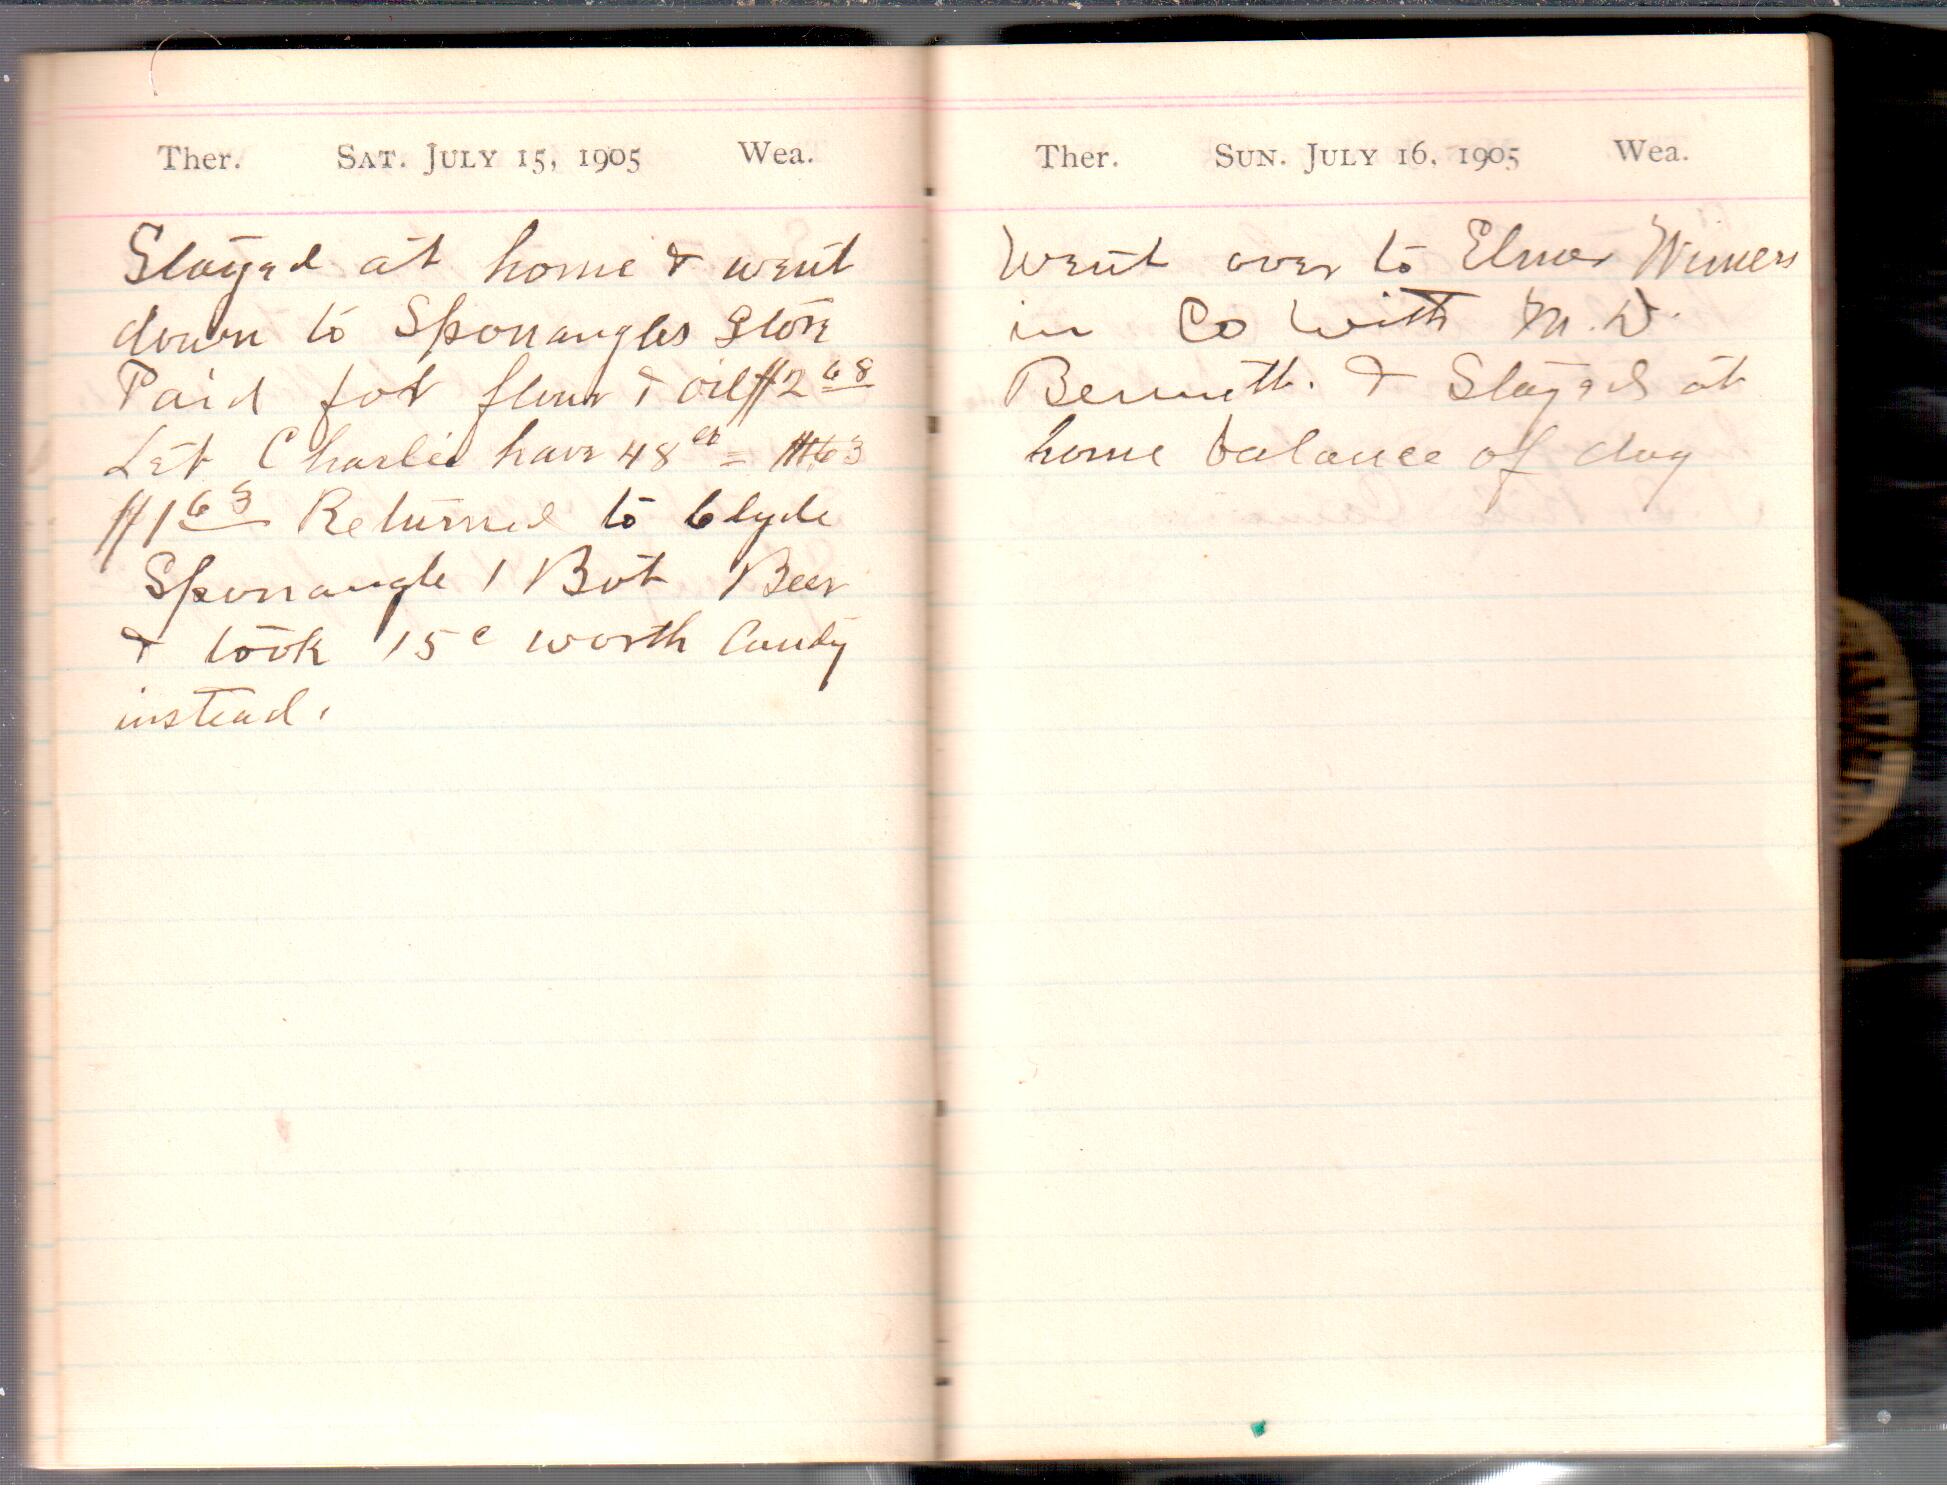 Ther. SAT. JULY 15, 1905 Wea.
Stayed at home & went
down to Sponaugles Store
Paid for flour & oil $2 68
Let Charlie have 48 =
$1 63 Returned to Clyde
Sponaugle 1 Bot Beer
& took 15c worth Candy
instead.
Ther. SUN. JULY 16, 1905 Wea.
Went over to Elmer Wimers
in Co With M. D.
Bennett. & Stayed at
home balance of day